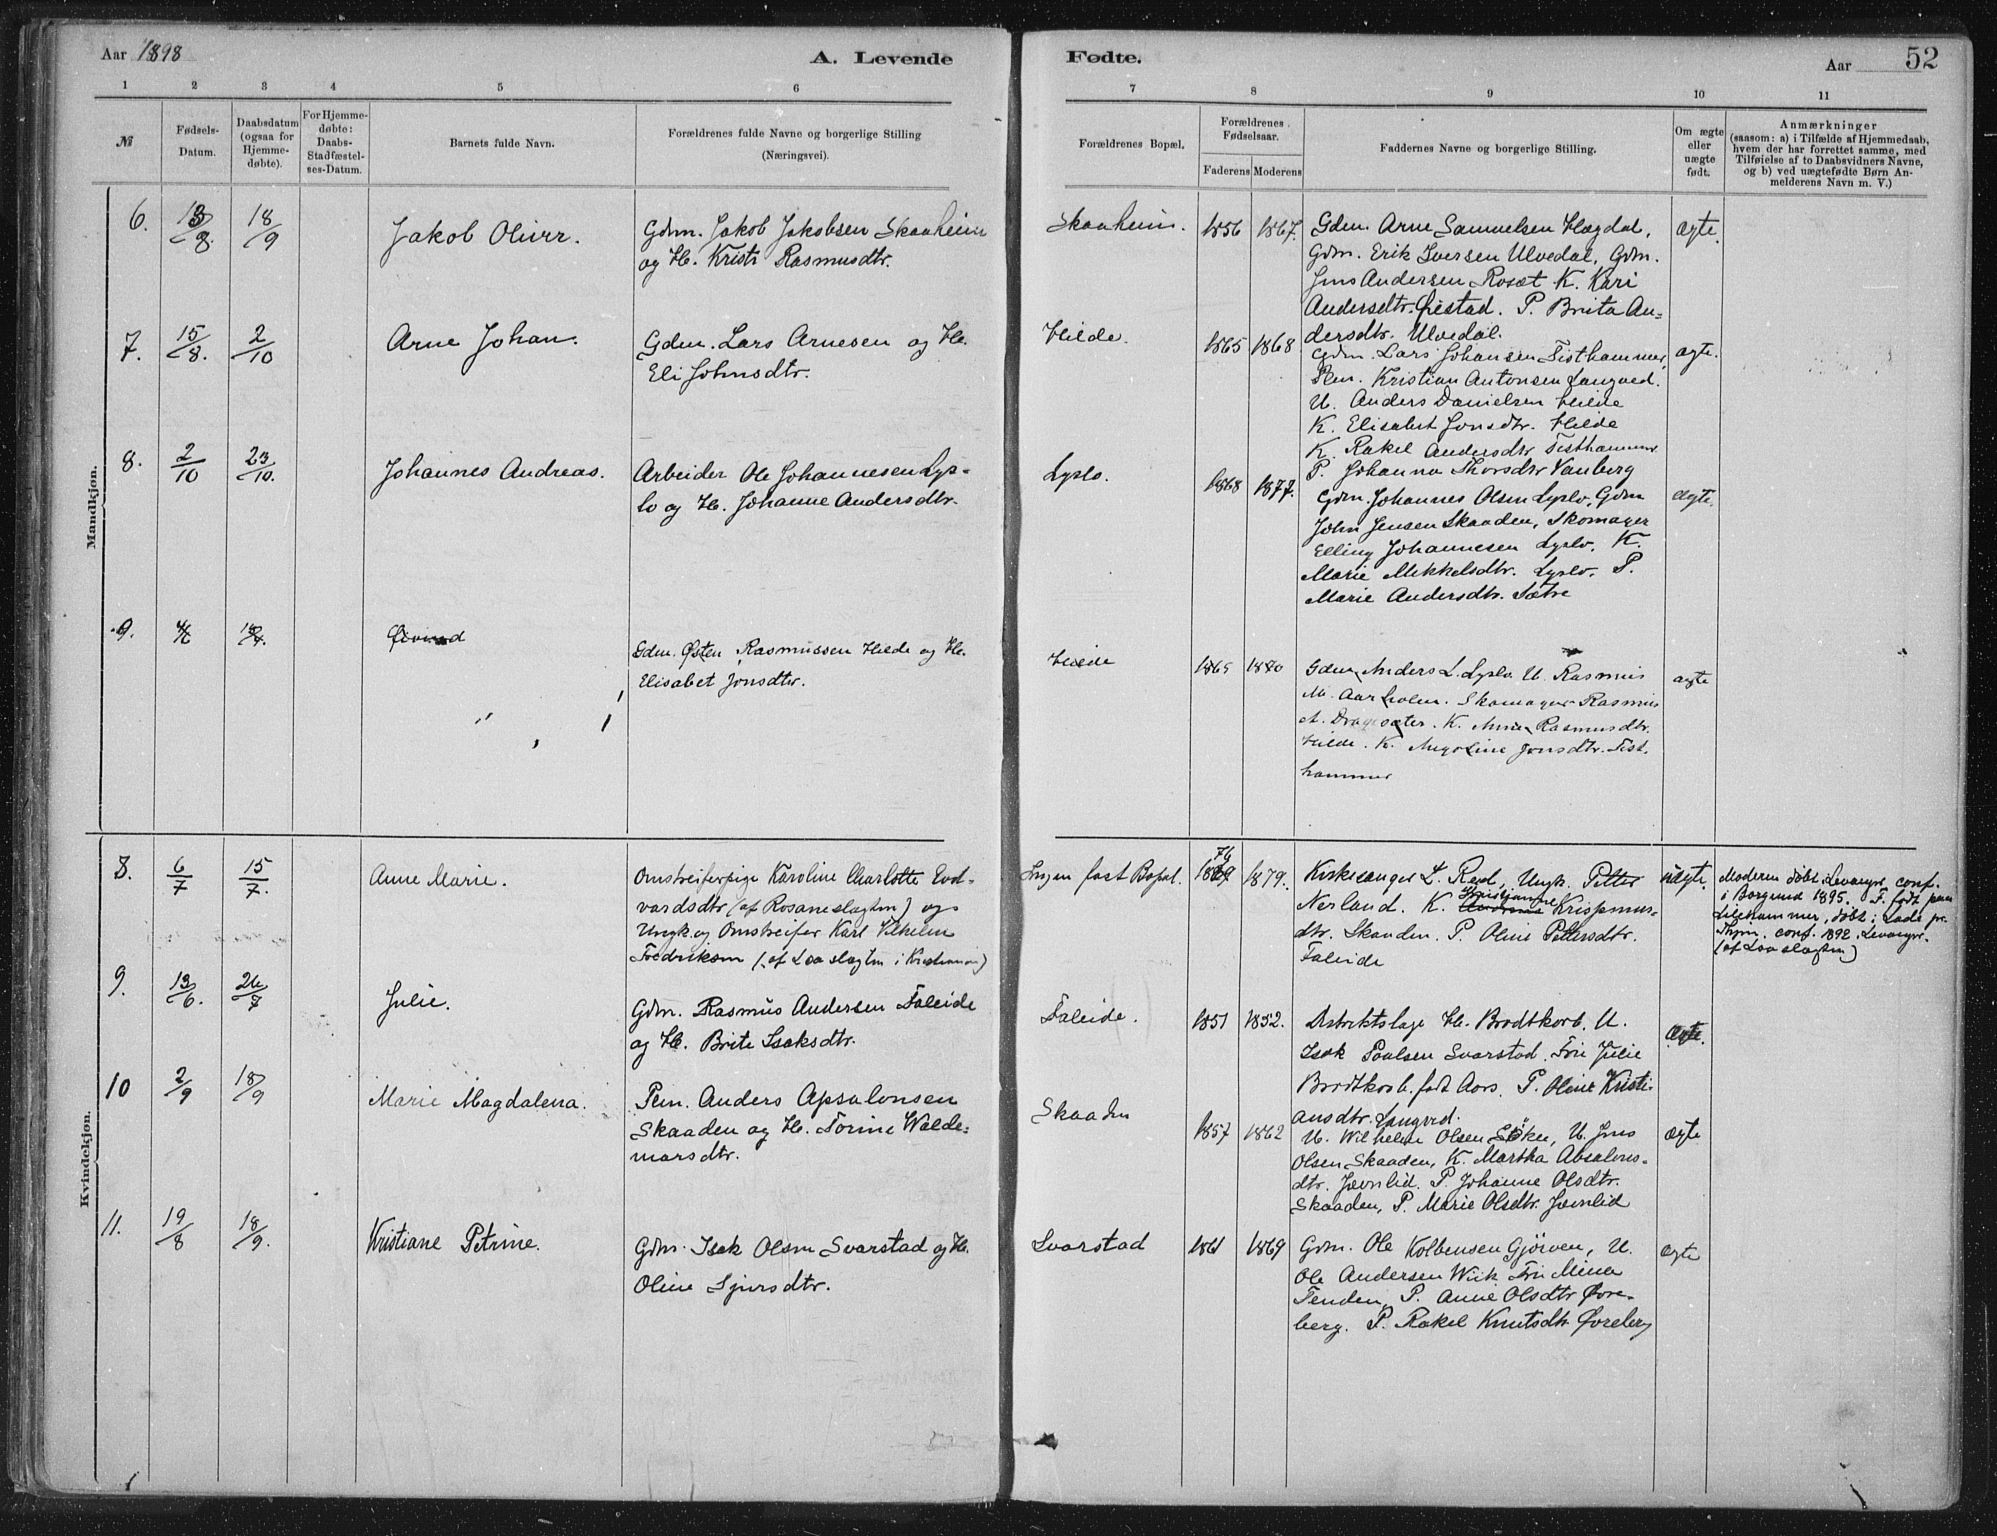 Aar 1898
A. Levende
Fødte.
Aar
52
1 2 3 4 5 6 7 8 9 10 11
№
Fødsels-
Datum.
Daabsdatum
(ogsaa for
Hjemme-
døbte).
For Hjemme-
døbte:
Daabs-
Stadfæstel-
ses-Datum.
Barnets fulde Navn.
Forældrenes fulde Navne og borgerlige Stilling
(Næringsvei).
Forældrenes Bopæl.
Forældrenes
Fødselsaar.
Faderens Moderens
Faddernes Navne og borgerlige Stilling.
Om ægte
eller
uægte
født.
Anmærkninger
(saasom: a) i Tilfælde af Hjemmedaab,
hvem der har forrettet samme, med
Tilføielse af to Daabsvidners Navne,
og b) ved uægtefødte Børn An-
melderens Navn m. V.)
Mandkjøn.
6. 13/8 18/9
Jakob Oliver.
Gdm. Jakob Jakobsen Skaaheim
og H. Kristi Rasmusdtr.
Skaaheim.
1856 1867.
Gdm. Arne Samuelsen Hægdal,
Gdm. Erik Iversen Ulvedal, Gdm.
Jens Andersen Roset K. Kari
Andersdtr. Øiestad. P. Brita An-
dersdtr. Ulvedal.
ægte.
7. 15/8. 2/10
Arne Johan.
Gdm. Lars Arnesen og H.
Eli Johnsdtr.
Hilde.
1865 1868
Gdm. Lars Johansen Tisthammer,
Kristian Antonsen Langved.
U. Anders Danielsen Hilde
K. Elisabet Jonsdtr. Hilde
K. Rakel Andersdtr Tisthammer
P. Johanna Thorsdtr Vanberg
ægte.
8. 2/10 23/10.
Johannes Andreas.
Arbeider Ole Johannesen Lys-
lo og H. Johanne Andersdtr.
Lyslo.
1868 1877.
Gdm. Johannes Olsen Lyslo, Gdm
John Jensen Skaaden, Skomager
Elling Johannesen Lyslo, K.
Marie Mikkelsdtr. Lyslo, P.
Marie Andersdtr. Sætre
ægte.
9.
Øivind
Gdm. Østen Rasmussen Hilde og H.
Elisabet Jonsdtr.
Hilde
1865 1870
Gdm Anders L. Lyslo U. Rasmus
M. Aarholen. Skomager Rasmus
A. Dragesæter. K. Anna Rasmusdtr.
Hilde. K. Angoline Jonsdtr. Tist-
hammer
ægte
Kvindekjøn.
8. 6/7 15/7.
Anne Marie.
Omstreiferpige Karoline Charlotte Ed-
vardsdtr (af Rosaneslægten) og
Ungk. og Omstreifer Karl Vilhelm
Fredriksen (af Loaslægten i Kristiania)
Ingen fast Bopæl.
76
1879.
Kirkesanger L. Rød, Ungk. Petter
Nerland. K. Kristjanne Krispinus-
dtr. Skaaden. P. Oline Pettersdtr.
Faleide
uægte.
Moderen døbt i Levanger, conf.
i Borgund 1895. F. født paa
Lillehammer, døbt i Lade pr.
Thjem, conf. 1892 i Levanger.
(af Loaslægten)
9. 13/6. 26/7
Julie.
Gdm. Rasmus Andersen Faleide
og H. Brite Isaksdtr.
Faleide.
1851 1852.
Distriktslæge H. Brodtkorb. U.
Isak Paulsen Svarstad. Fru Julie
Brodtkorb, født Aars. P. Oline Kristi-
ansdtr. Langved.
ægte.
10 2/9 18/9
Marie Magdalena.
Pem. Anders Apsalonsen
Skaaden og H. Torine Walde-
marsdtr.
Skaaden
1857 1862
U. Wilhelm Olsen Løken, U. Jens
Olsen Skaaden, K. Martha Absalons-
dtr. Jevnlid. P. Johanne Olsdtr.
Skaaden, P. Marie Olsdtr. Jevnlid
ægte
11. 19/8 18/9.
Kristiane Petrine.
Gdm. Isak Olsen Svarstad og H.
Oline Sjursdtr.
Svarstad
1861 1869
Gdm. Ole Kolbensen Gjørven, U.
Ole Andersen Wiik. Fru Mina
Tenden, P. Anne Olsdtr Øvre-
berg. P. Rakel Knutsdtr Øvreberg
ægte